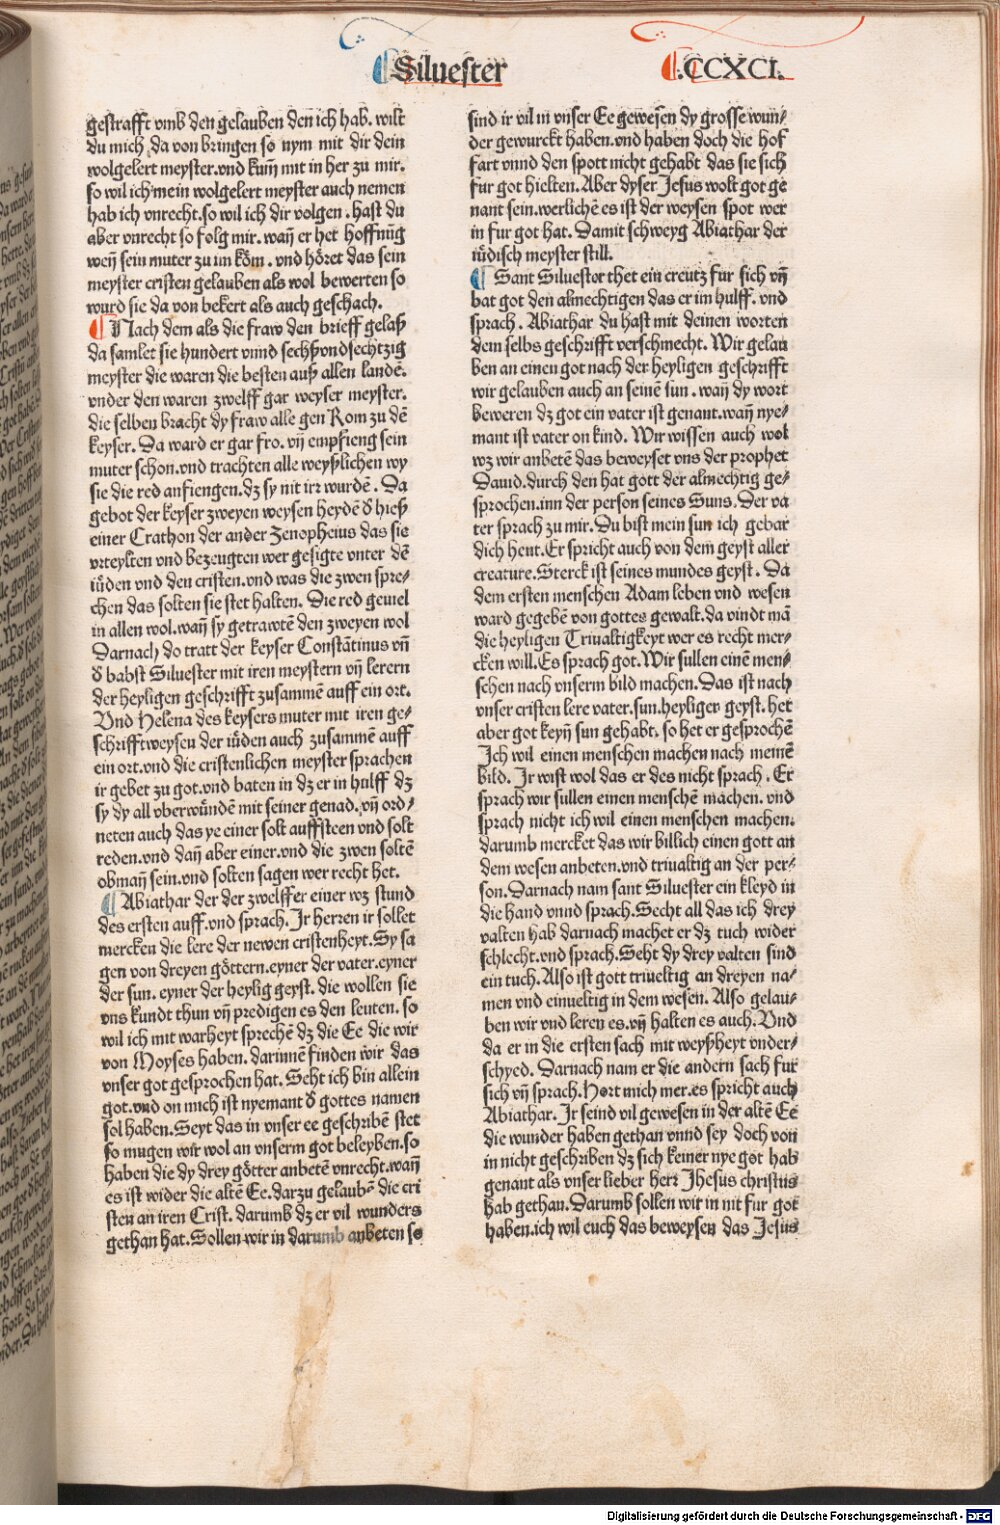 Siluester
.CCXCI.
gestrafft vmb den gelauben den ich hab. wilt
du mich da von bringen so nym mit dir dein
wolgelert meyster.vnd kum̄ mit in her zu mir.
so wil ich mein wolgelert meyster auch nemen
hab ich vnrecht.so wil ich dir volgen. hast du
aber vnrecht so folg mir. wan̄ er het hoffnūg
wen̄ sein muter zu im kȯm. vnd hȯret das sein
meyster cristen gelauben als wol bewerten so
wurd sie da von bekert als auch geschach.
Nach dem als die fraw den brieff gelaß
da samlet sie hundert vnnd sechßvndsechtzig
meyster die waren die besten auß allen landē.
vnder den waren zwelff gar weyser meyster.
die selben bracht dy fraw alle gen Rom zu dē
keyser. Da ward er gar fro. vn̄ empfieng sein
muter schon.vnd trachten alle weyßlichen wy
sie die red anfiengen.dz sy nit irr wurdē. Da
gebot der keyser zweyen weysen heydē d hieß
einer Crathon der ander Zenopheius das sie
vrteylten vnd bezeugten wer gesigte vnter dē
iu̇den vnd den cristen.vnd was die zwen spre⸗
chen das solten sie stet halten. Die red geuiel
in allen wol.wan̄ sy getrawtē den zweyen wol
Darnach do tratt der keyser Constātinus vn̄
d babst Siluester mit iren meystern vn̄ lerern
der heyligen geschrifft zusammē auff ein ort.
Vnd Helena des keysers muter mit iren ge⸗
schrifftweysen der iu̇den auch zusammē auff
ein ort.vnd die cristenlichen meyster sprachen
ir gebet zu got.vnd baten in dz er in hulff dz
sy dy all vberwu̇ndē mit seiner genad. vn̄ ord⸗
neten auch das ye einer solt auffsteen vnd solt
reden.vnd dan̄ aber einer.vnd die zwen soltē
obman̄ sein.vnd solten sagen wer recht het.
Abiathar der der zwelffer einer wz stund
des ersten auff.vnd sprach. Ir herren ir sollet
mercken die lere der newen cristenheyt. Sy sa
gen von dreyen gȯttern.eyner der vater.eyner
der sun. eyner der heylig geyst. die wollen sie
vns kundt thun vn̄ predigen es den leuten. so
wil ich mit warheyt sprechē dz die Ee die wir
von Moyses haben. darinnē finden wir das
vnser got gesprochen hat. Seht ich bin allein
got.vnd on mich ist nyemant d gottes namen
sol haben. Seyt das in vnser ee geschribē stet
so mugen wir wol an vnserm got beleyben.so
haben die dy drey gȯtter anbetē vnrecht.wan̄
es ist wider die altē Ee.darzu gelaubē die cri
sten an iren Crist. darumb dz er vil wunders
gethan hat. Sollen wir in darumb anbeten so
sind ir vil in vnser Ee gewesen dy grosse wun⸗
der gewurckt haben.vnd haben doch die hof
fart vnnd den spott nicht gehabt das sie sich
fur got hielten. Aber dyser Jesus wolt got ge
nant sein.werlichē es ist der weysen spot wer
in fur got hat. Damit schweyg Abiathar der
iu̇disch meyster still.
Sant Siluestor thet ein creutz fur sich vn̄
bat got den almechtigen das er im hulff. vnd
sprach. Abiathar du hast mit deinen worten
dem selbs geschrifft verschmecht. Wir gelau
ben an einen got nach der heyligen geschrifft
wir gelauben auch an seinē sun. wan̄ dy wort
beweren dz got ein vater ist genant.wan̄ nye⸗
mant ist vater on kind. Wir wissen auch wol
wz wir anbetē das beweyset vns der prophet
Dauid.durch den hat gott der almechtig ge⸗
sprochen.inn der person seines Suns. Der va
ter sprach zu mir. Du bist mein sun ich gebar
dich heut. Er spricht auch von dem geyst aller
creature. Sterck ist seines mundes geyst. Da
dem ersten menschen Adam leben vnd wesen
ward gegebē von gottes gewalt.da vindt mā
die heyligen Triualtigkeyt wer es recht mer⸗
cken will. Es sprach got. Wir sullen einē men⸗
schen nach vnserm bild machen. Das ist nach
vnser cristen lere vater.sun.heyliger geyst. het
aber got keyn̄ sun gehabt. so het er gesprochē
Ich wil einen menschen machen nach meinē
bild. Ir wist wol das er des nicht sprach. Er
sprach wir sullen einen menschē machen. vnd
sprach nicht ich wil einen menschen machen.
darumb mercket das wir billich einen gott an
dem wesen anbeten.vnd triualtig an der per⸗
son. Darnach nam sant Siluester ein kleyd in
die hand vnnd sprach. Secht all das ich drey
valten hab darnach machet er dz tuch wider
schlecht.vnd sprach. Seht dy drey valten sind
ein tuch. Also ist gott triueltig an dreyen na⸗
men vnd einueltig in dem wesen. Also gelau⸗
ben wir vnd leren es.vn̄ halten es auch. Vnd
da er in die ersten sach mit weyßheyt vnder⸗
schyed. Darnach nam er die andern sach fur
sich vn̄ sprach. Hort mich mer.es spricht auch
Abiathar. Ir seind vil gewesen in der altē Ee
die wunder haben gethan vnnd sey doch von
in nicht geschriben dz sich keiner nye got hab
genant als vnser lieber herr Jhesus christus
hab gethan. Darumb sollen wir in nit fur got
haben.ich wil euch das beweysen das Jesus
Digitalisierung gefördert durch die Deutsche Forschungsgemeinschaft - DFG